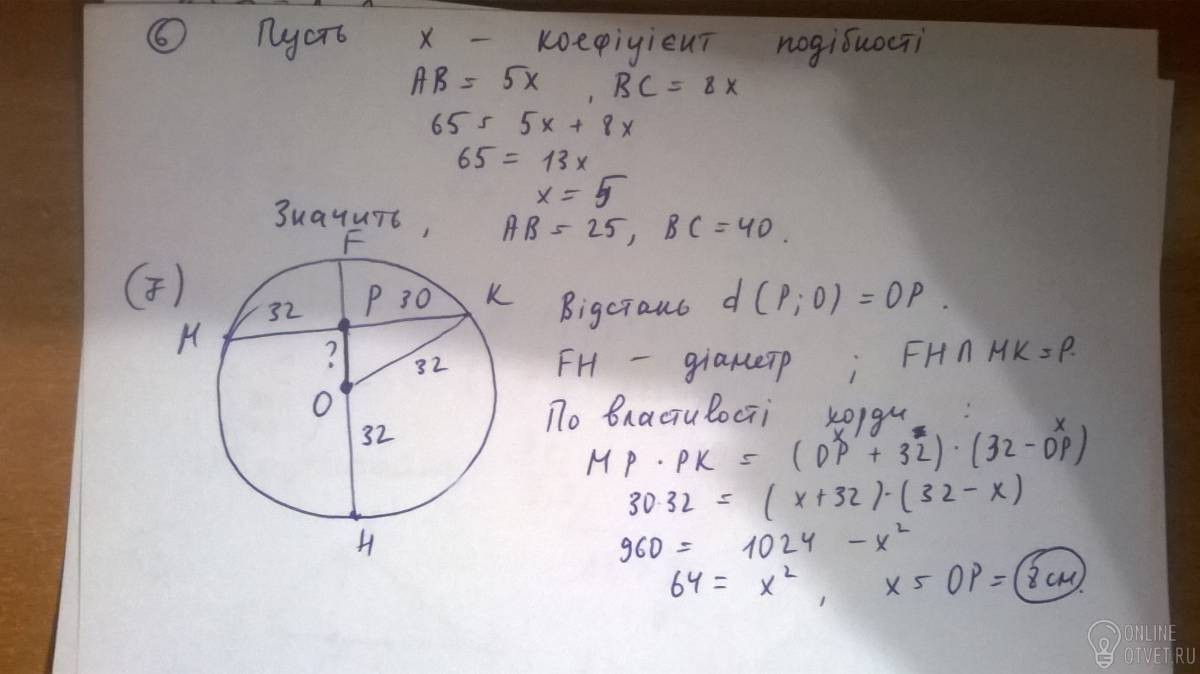 6 Пусть x – коефіцієнт подібності
AB = 5x , BC = 8x
65 = 5x + 8x
65 = 13x
x = 5
Значить , AB = 25, BC = 40.
(7)
F
M 32 P 30 K
? 32
O
32
H
Відстань d (P; O) = OP .
FH – діаметр ; FH ∩ MK = P.
По властивості хорди :
x x
MP · PK = (OP + 32) · (32 – OP)
30·32 = (x+32)·(32 – x)
960 = 1024 – x²
64 = x² , x = OP = 8 см.
ONLINE
OTVET.RU